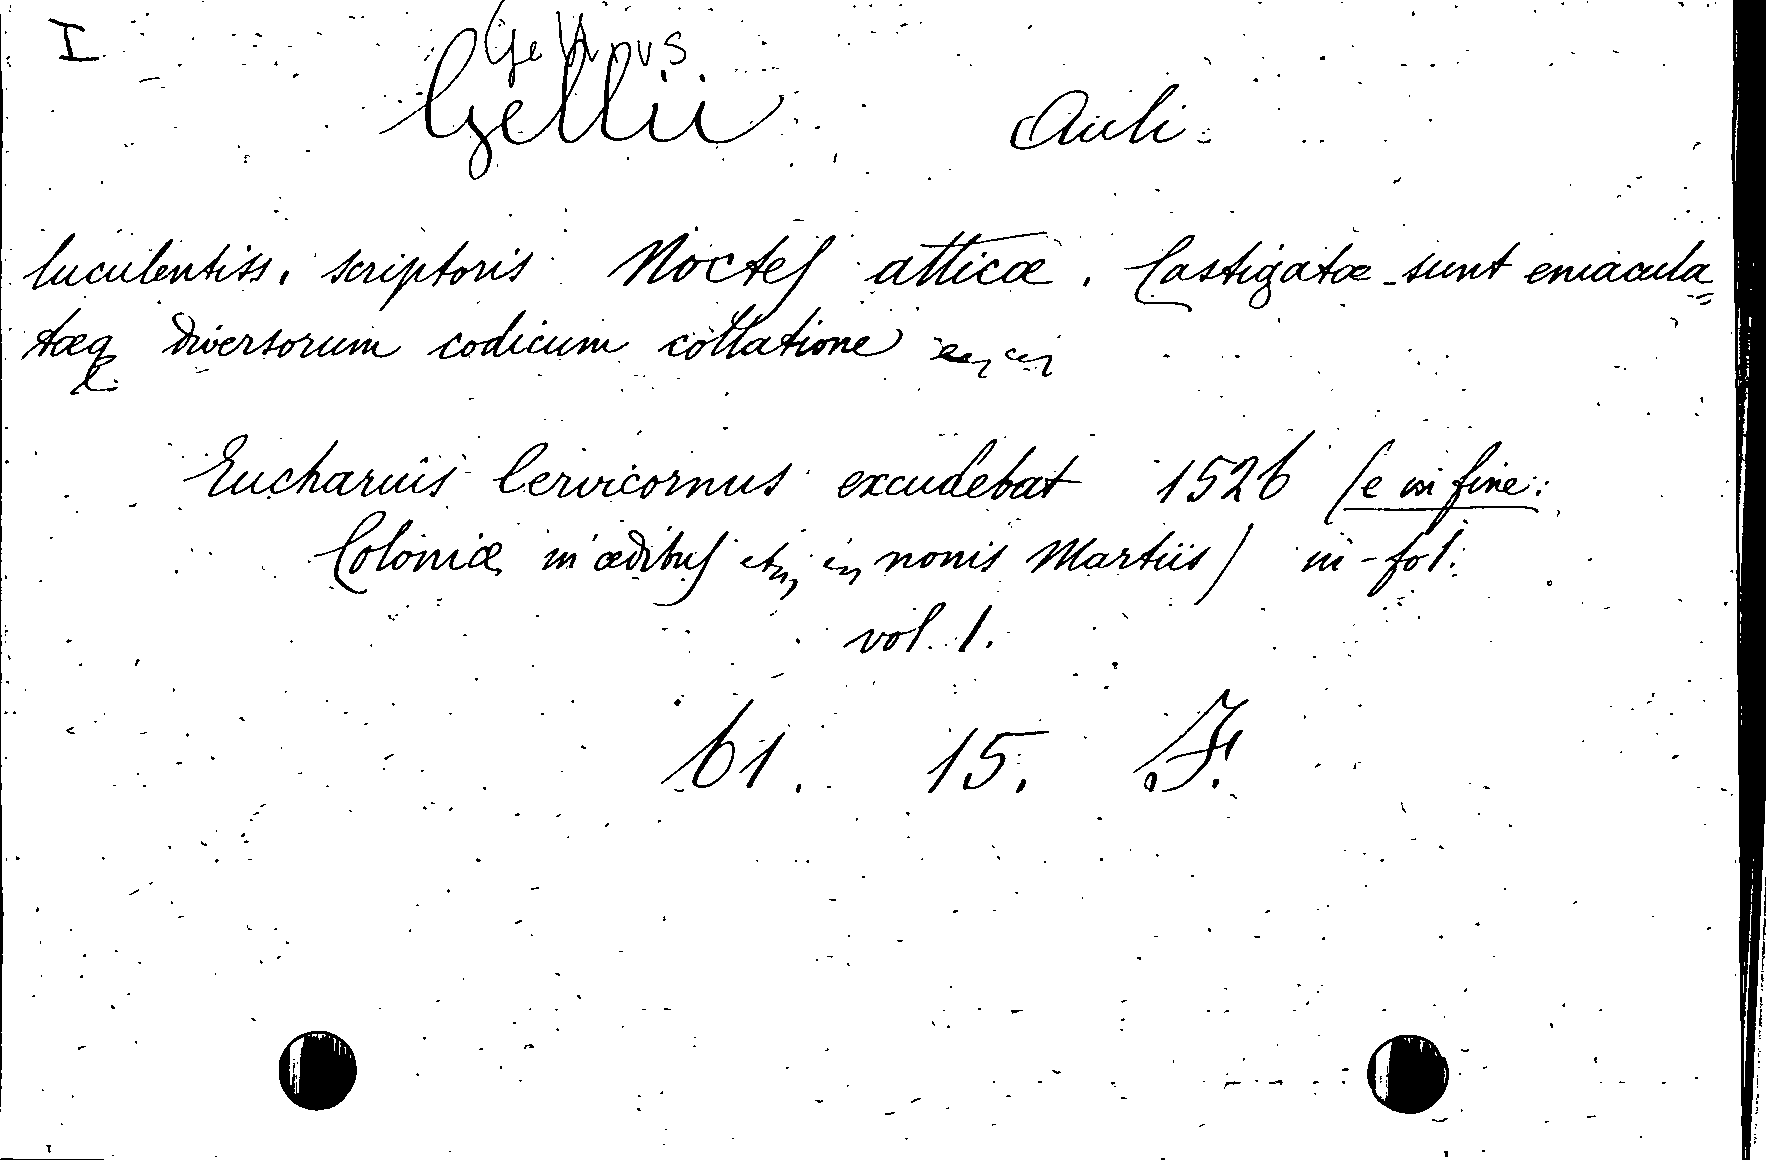 I
Gellius
Gellii Auli
luculentiss. scriptoris Noctes atticæ. Castigatæ sunt emacula=
tæq diversorum codicum collatione
Eucharius Cervicornus excudebat 1526 (e in fine:
Coloniæ in ædibus etc, etc, nonis Martiis) in-fol.
vol. 1.
61. 15. F.